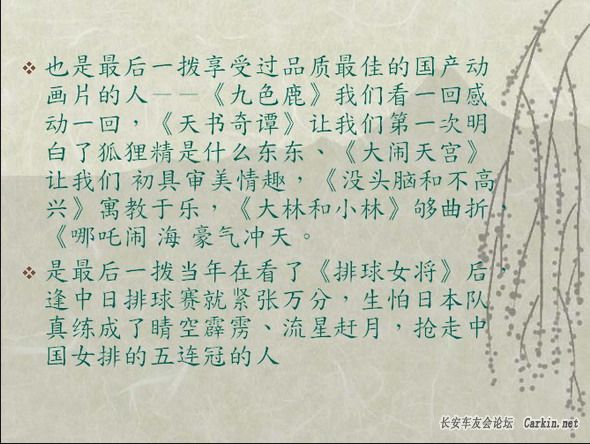 也是最后一拨享受过品质最佳的国产动
画片的人——《九色鹿》我们看一回感
动一回，《天书奇谭》让我们第一次明
白了狐狸精是什么东东、《大闹天宫》
让我们 初具审美情趣，《没头脑和不高
兴》寓教于乐，《大林和小林》够曲折，
《哪吒闹 海 豪气冲天。
是最后一拨当年在看了《排球女将》后，
逢中日排球赛就紧张万分，生怕日本队
真练成了晴空霹雳、流星赶月，抢走中
国女排的五连冠的人
长安车友会论坛 Carkin.net